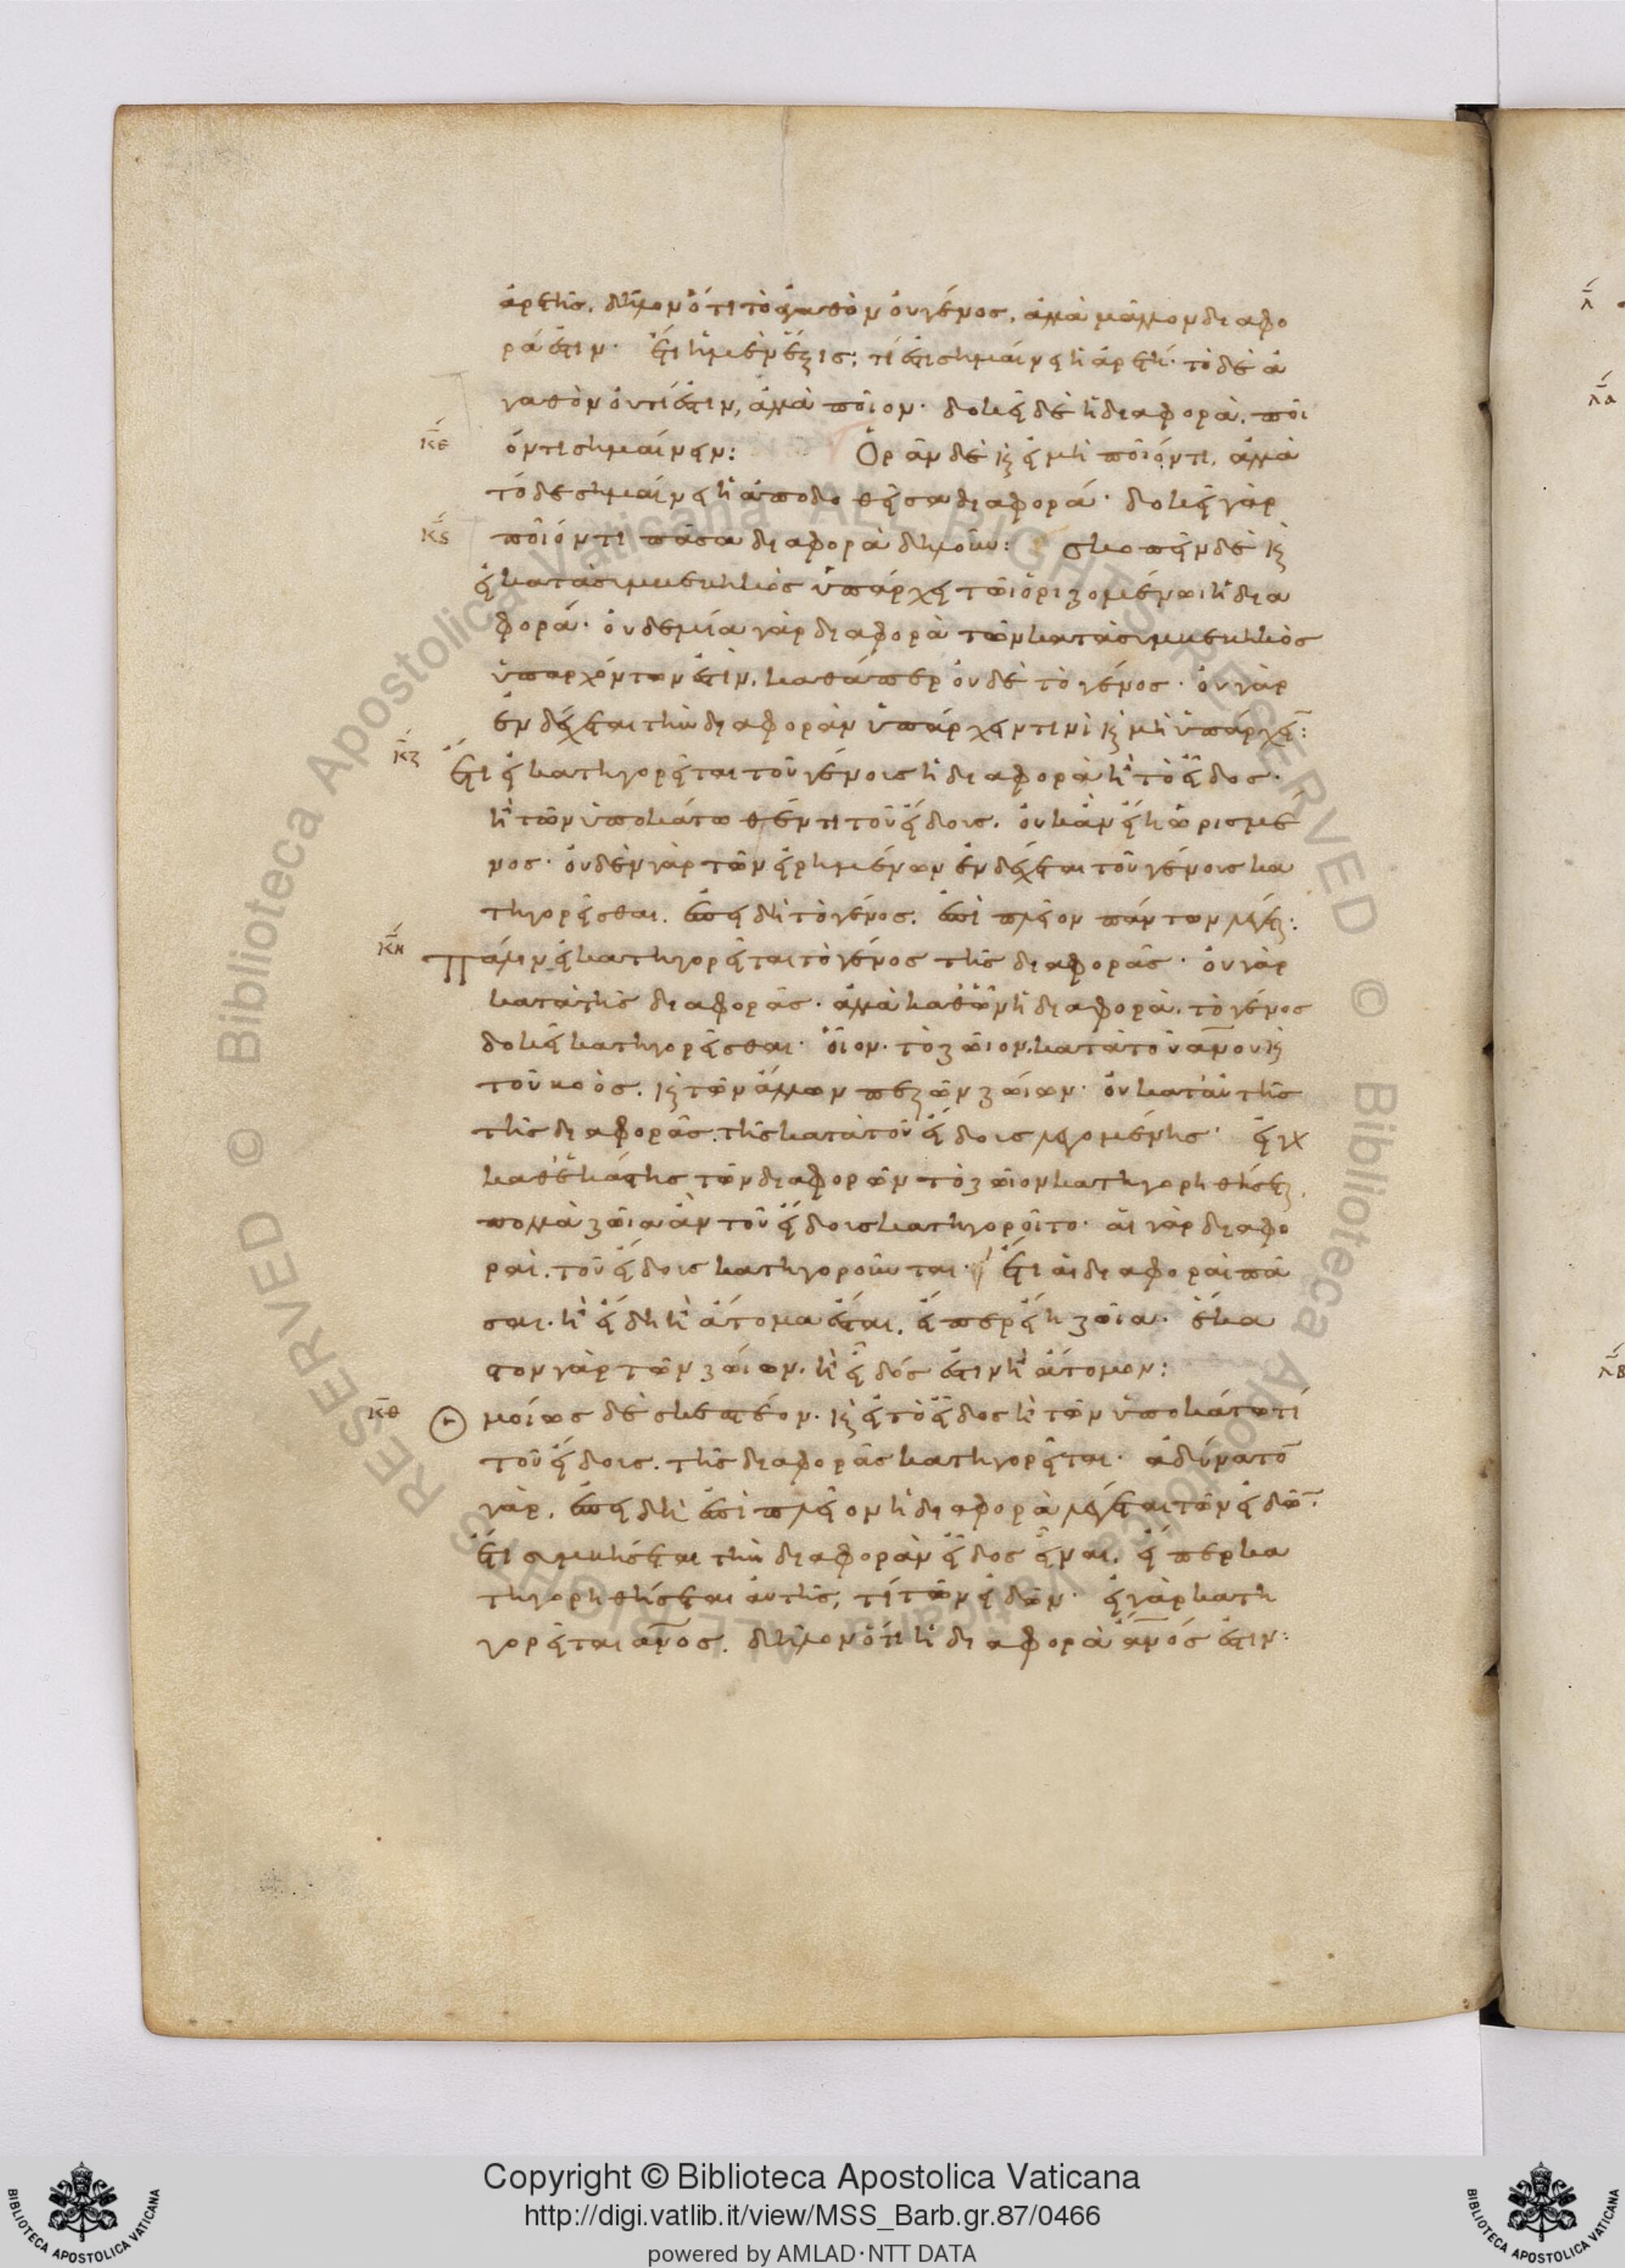 ἀρετῆς. δῆλον ὅτι τὸ ἀγαθὸν οὐ γένος, ἀλλὰ μᾶλλον διαφο
ρά ἐστιν· ἔτι ἡ μὲν ἕξις, τί ἐστι σημαίνει ἡ ἀρετή· τὸ δὲ ἀ
γαθὸν οὐ τί ἐστιν, ἀλλὰ ποῖον· δοκεῖ δὲ ἡ διαφορὰ, ποι
κε όν τι σημαίνειν: Ὁρᾶν δὲ κ εἰ μὴ ποιόν τι, ἀλλὰ
τόδε σημαίνει ἡ ἀποδοθεῖσα διαφορά· δοκεῖ γὰρ
κς ποιόν τι πᾶσα διαφορὰ δηλοῦν: σκοπεῖν δὲ κ
εἰ κατὰ συμβεβηκὸς ὑπάρχει τῶι ὁριζομένωι ἡ δια
φορά· οὐδεμία γὰρ διαφορὰ τῶν κατὰ συμβεβηκὸς
ὑπαρχόντων ἐστὶν, καθάπερ οὐδὲ τὸ γένος· οὐ γὰρ
ἐνδέχεται τὴν διαφορὰν ὑπάρχειν τινὶ κ μὴ ὑπάρχει̅:
κζ ἔτι εἰ κατηγορεῖται τοῦ γένους ἡ διαφορὰ ἢ τὸ εἶδος·
ἢ τῶν ὑποκάτω θέν τι τοῦ εἴδους. οὐκ ἂν εἴη ὡρισμέ
νος· οὐδὲν γὰρ τῶν εἰρημένων ἐνδέχεται τοῦ γένους κα
τηγορεῖσθαι. ἐπειδὴ τὸ γένος. ἐπὶ πλεῖον πάντων λέγεται:
κη Πάλιν εἰ κατηγορεῖται τὸ γένος τῆς διαφορᾶς· οὐ γὰρ
κατὰ τῆς διαφορᾶς· ἀλλὰ καθ' ὧν ἡ διαφορὰ. τὸ γένος
δοκεῖ κατηγορεῖσθαι· οἷον. τὸ ζῶιον, κατὰ τοῦ αν̅ου κ
τοῦ βοὸς. κ τῶν ἄλλων πεζῶν ζώιων· οὐ κατ' αὐτῆς
τῆς διαφορᾶς. τῆς κατὰ τοῦ εἴδους λεγομένης· εἰ γὰρ
καθ' ἑκάστης τῶν διαφορῶν τὸ ζῶιον κατηγορηθήσεται,
πολλὰ ζῶια ἂν τοῦ εἴδους κατηγοροῖτο· αἱ γὰρ διαφο
ραὶ. τοῦ εἴδους κατηγοροῦνται· ἔτι αἱ διαφοραὶ πᾶ
σαι. ἢ εἴδη ἢ ἄτομα ἔσται. εἴπερ εἴη ζῶια· ἕκα
στον γὰρ τῶν ζώιων. ἢ εἶδός ἐστιν ἢ ἄτομον:
κθ Ὁμοίως δὲ σκεπτέον. κ εἰ τὸ εἶδος ἢ τῶν ὑποκάτω τί
τοῦ εἴδους. τῆς διαφορᾶς κατηγορεῖται· ἀδύνατο̅
γὰρ, ἐπειδὴ ἐπὶ πλεῖον ἡ διαφορὰ λέγεται τῶν εἰδῶ̅·
ἔτι συμβήσεται τὴν διαφορὰν εἶδος εἶναι. εἴπερ κα
τηγορηθήσεται αὐτῆς, τὶ τῶν εἰδῶν· εἰ γὰρ κατη
γορεῖται αν̅ος. δῆλον ὅτι ἡ διαφορὰ αν̅ός ἐστιν:
λ
λα
λβ
RESERVED © Biblioteca Apostolica Vaticana ALL RIGHTS RESERVED © Biblioteca Apostolica Vaticana ALL RIGHTS
Copyright © Biblioteca Apostolica Vaticana
http://digi.vatlib.it/view/MSS_Barb.gr.87/0466
powered by AMLAD·NTT DATA
BIBLIOTECA APOSTOLICA VATICANA
BIBLIOTECA APOSTOLICA VATICANA